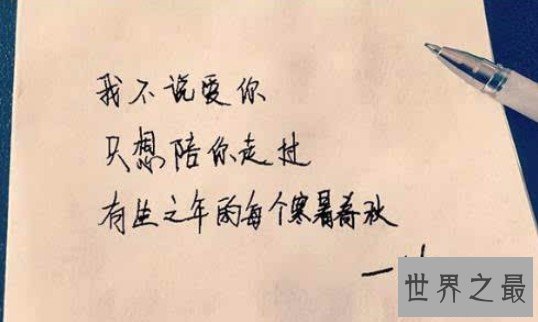 我不说爱你
只想陪你走过
有生之年的每个寒暑春秋
世界之最